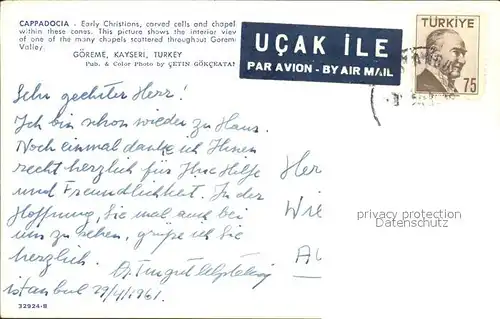 CAPPADOCIA - Early Christions, carved cells and chapel
within these cones. This picture shows the interior view
of one of the many chapels scattered throughout Goreme
Valley.
GÖREME, KAYSERI, TURKEY
Pub. & Color Photo by ÇETIN GÖKÇETAN
UÇAK İLE
PAR AVION - BY AIR MAIL
TÜRKİYE
75
Sehr geehrter Herr!
Ich bin schon wieder zu Haus.
Noch einmal danke ich Ihnen
recht herzlich für Ihre Hilfe
und Freundlichkeit. In der
Hoffnung, Sie mal auch bei
uns zu sehen, grüße ich Sie
herzlich.
istanbul 29/4/1961.
Her
Wie
Au
privacy protection
Datenschutz
32924-B